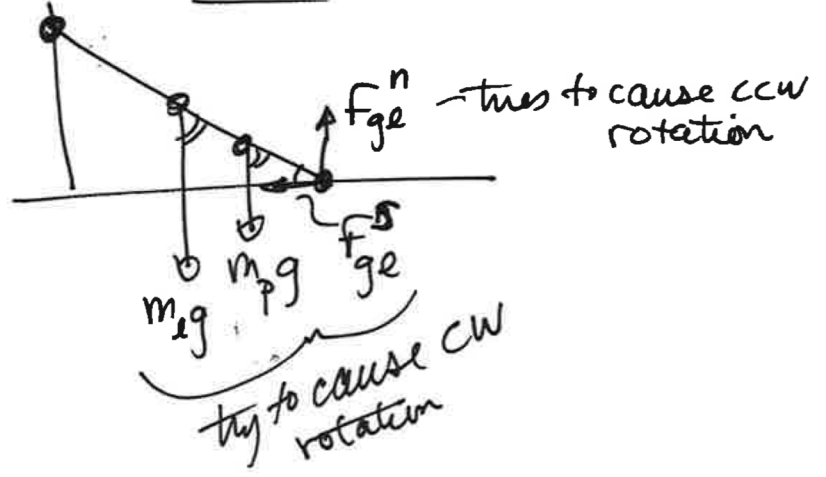 Fgeⁿ – tries to cause ccw
rotation
Fgeˢ
mₚg
mₗg
try to cause CW
rotation